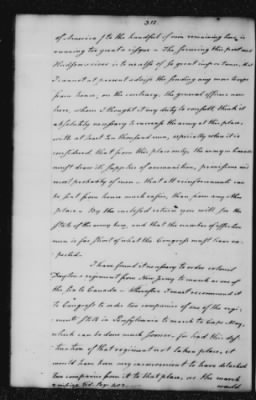 317
of America, to the handful of men remaining here is
running too great a risque — The securing this post and
Hudson's river is to us also of so great importance, that
I cannot at present advise the sending any more troops
from hence, on the contrary, the general officers now
here, whom I thought it my duty to consult, think it
absolutely necessary to increase the army at this place,
with at least ten thousand men, especially when it is
considered that from this place only, the army in Canada
must draw its supplies of ammunition, provisions and
most probably of men — that all reinforcements can
be sent from hence much easier, than from any other
place — By the enclosed return you will see the
state of the army here, and that the number of effective
men is far short of what the Congress must have ex-
pected.
I have found it necessary to order colonel
Dayton's regiment from New Jersey to march as one of
the six to Canada — therefore I must recommend it
to Congress to order two companies of one of the regi-
ments still in Pennsylvania to march to Cape May,
which can be done much sooner, for had this des-
tination of that regiment not taken place, it
would have been very inconvenient to have detached
two companies from it to that place, as the march
would